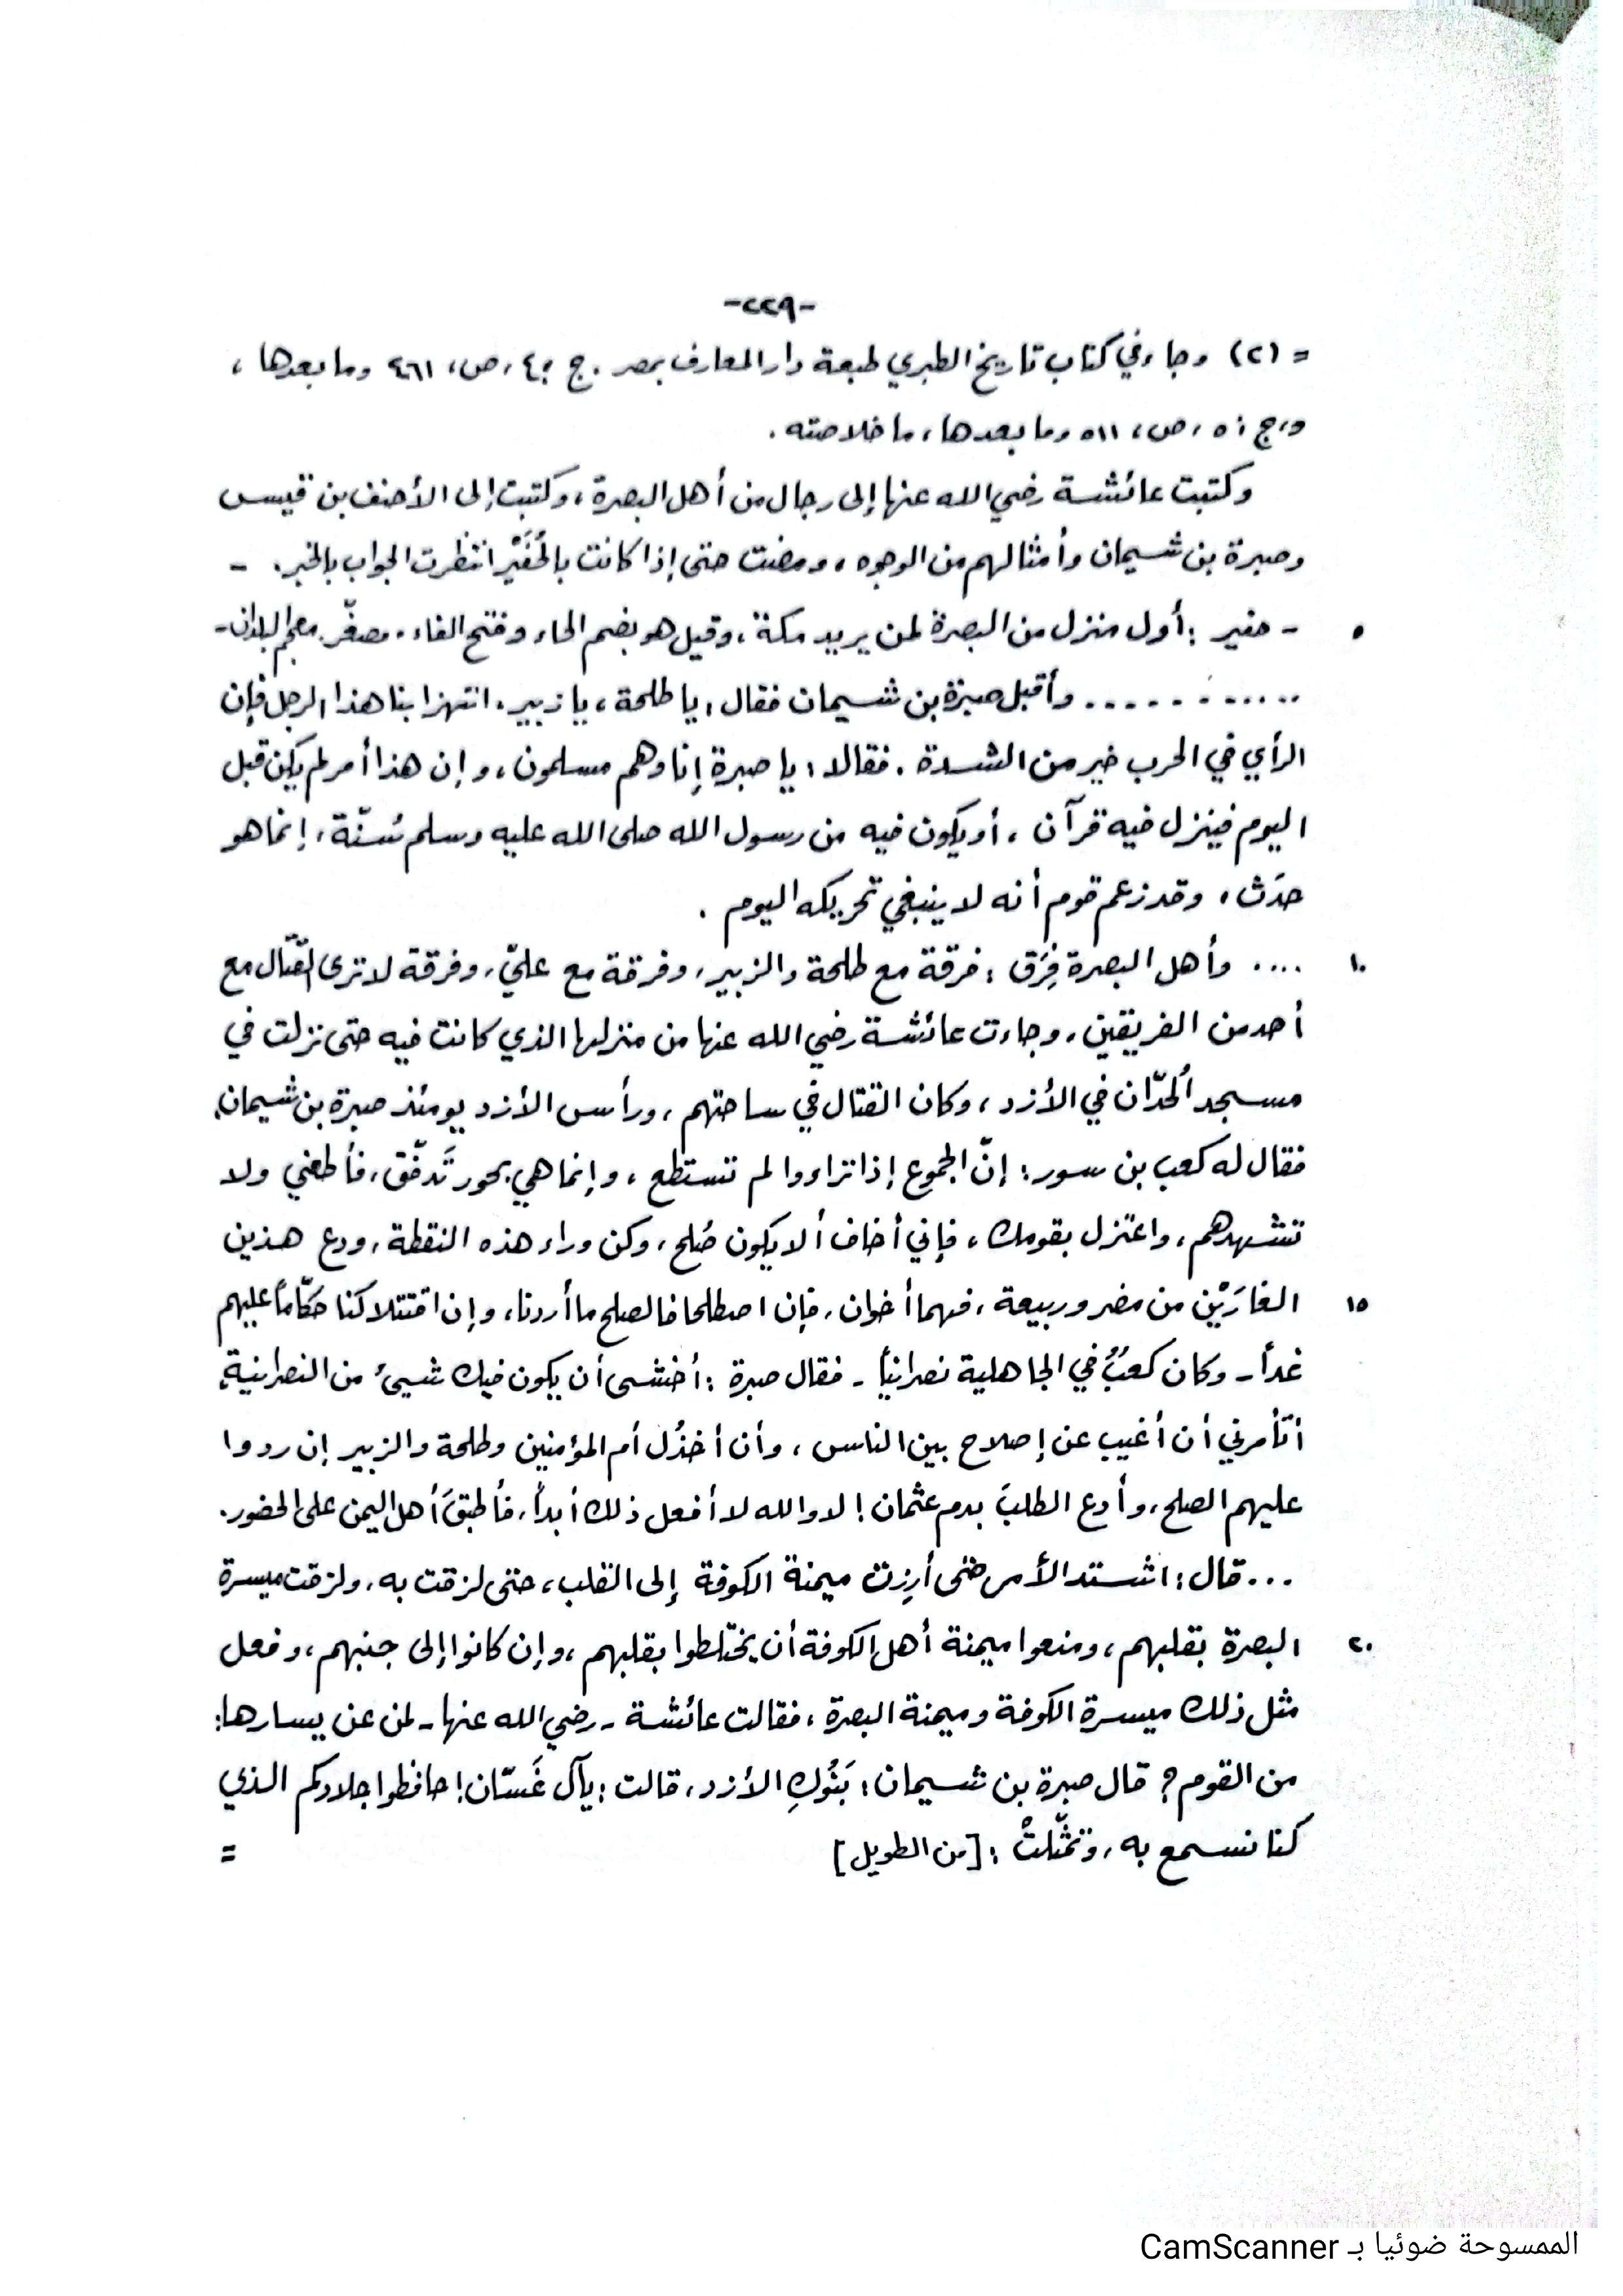 -٢٢٩-
= (٢) وجاء في كتاب تاريخ الطبري طبعة دار المعارف بمصر. ج: ٤، ص: ٤٦١ وما بعدها،
وج: ٥، ص: ٥١١ وما بعدها، ما خلاصته.
وكتبت عائشة رضي الله عنها إلى رجال من أهل البصرة، وكتبت إلى الأحنف بن قيس
وصبرة بن شيمان وأمثالهم من الوجوه، ومضت حتى إذا كانت بالحُفَيْر انتظرت الجواب بالخبر. -
٥ - حفير: أول منزل من البصرة لمن يريد مكة، وقيل هو بضم الحاء وفتح الفاء. مصغّر. معجم البلدان-
............ وأقبل صبرة بن شيمان فقال: يا طلحة، يا زبير. انتهزا بنا هذا الرجل فإن
الرأي في الحرب خير من الشدة. فقالا: يا صبرة إنا وهم مسلمون، وإن هذا أمر لم يكن قبل
اليوم فينزل فيه قرآن، أو يكون فيه من رسول الله صلى الله عليه وسلم سُنّة، إنما هو
حدَث، وقد زعم قوم أنه لا ينبغي تحريكه اليوم.
١٠ .... وأهل البصرة فِرَق: فرقة مع طلحة والزبير، وفرقة مع عليّ، وفرقة لا ترى القتال مع
أحد من الفريقين، وجاءت عائشة رضي الله عنها من منزلها الذي كانت فيه حتى نزلت في
مسجد الحُدّان في الأزد، وكان القتال في ساحتهم، ورأس الأزد يومئذ صبرة بن شيمان،
فقال له كعب بن سور: إنّ الجموع إذا تراءوا لم تستطع، وإنما هي بحور تَدفّق، فأطعني ولا
تشهدهم، واعتزل بقومك، فإني أخاف ألا يكون صُلح، وكن وراء هذه النقطة، ودع هذين
١٥ الغارَيْن من مضر وربيعة، فهما أخوان، فإن اصطلحا فالصلح ما أردنا، وإن اقتتلا كنا حكّاماً عليهم
غداً - وكان كعبٌ في الجاهلية نصرانياً - فقال صبرة: أخشى أن يكون فيك شيئ من النصرانية،
أتأمرني أن أغيب عن إصلاح بين الناس، وأن أخذُل أم المؤمنين وطلحة والزبير إن ردوا
عليهم الصلح، وأدع الطلبَ بدم عثمان! لا والله لا أفعل ذلك أبداً، فأطبقَ أهل اليمن على الحضور.
... قال: اشتد الأمر حتى أرِزت ميمنة الكوفة إلى القلب، حتى لزقت به، ولزقت ميسرة
٢٠ البصرة بقلبهم، ومنعوا ميمنة أهل الكوفة أن يختلطوا بقلبهم، وإن كانوا إلى جنبهم، وفعل
مثل ذلك ميسرة الكوفة وميمنة البصرة، فقالت عائشة - رضي الله عنها - لمن عن يسارها:
من القوم؟ قال صبرة بن شيمان: بَنُوكِ الأزد، قالت: يآل غَسّان! حافظوا جلادكم الذي
كنا نسمع به، وتمثّلتْ: [من الطويل] =
الممسوحة ضوئيا بـ CamScanner